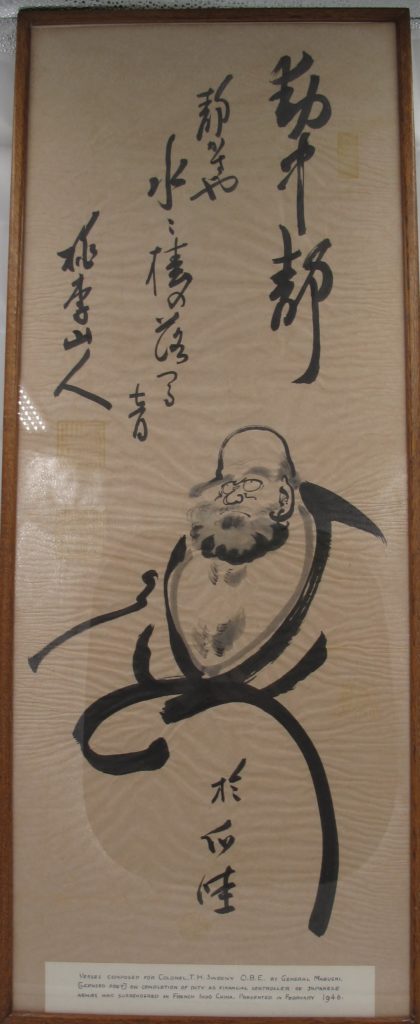 動中静
静かさや
水ニ椿の落る
音
桃李山人
於爪哇
VERSES COMPOSED FOR COLONEL T. H. SWEENY O.B.E. BY GENERAL MABUCHI,
POET) ON COMPLETION OF DUTY AS FINANCIAL CONTROLLER OF JAPANESE
SURRENDERED IN FRENCH INDO CHINA. PRESENTED IN FEBRUARY 1946.